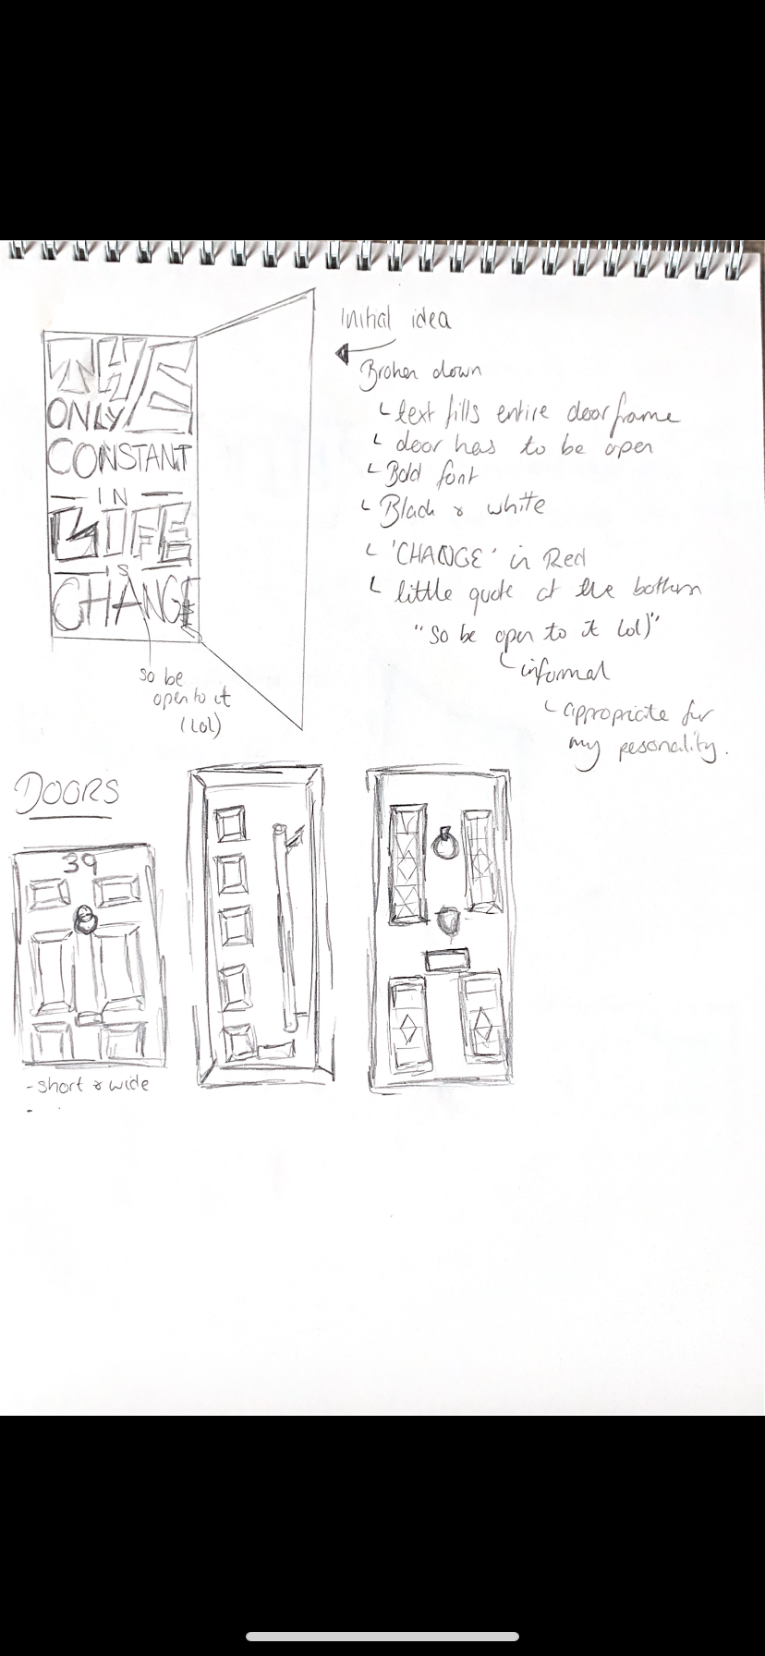 THE
ONLY
CONSTANT
IN
LIFE
IS
CHANGE
so be
open to it
(lol)
Initial idea
Broken down
text fills entire door frame
door has to be open
Bold font
Black & white
'CHANGE' in Red
little quote at the bottom
"so be open to it lol)"
informal
appropriate for
my pesonality.
DOORS
39
- short & wide
-